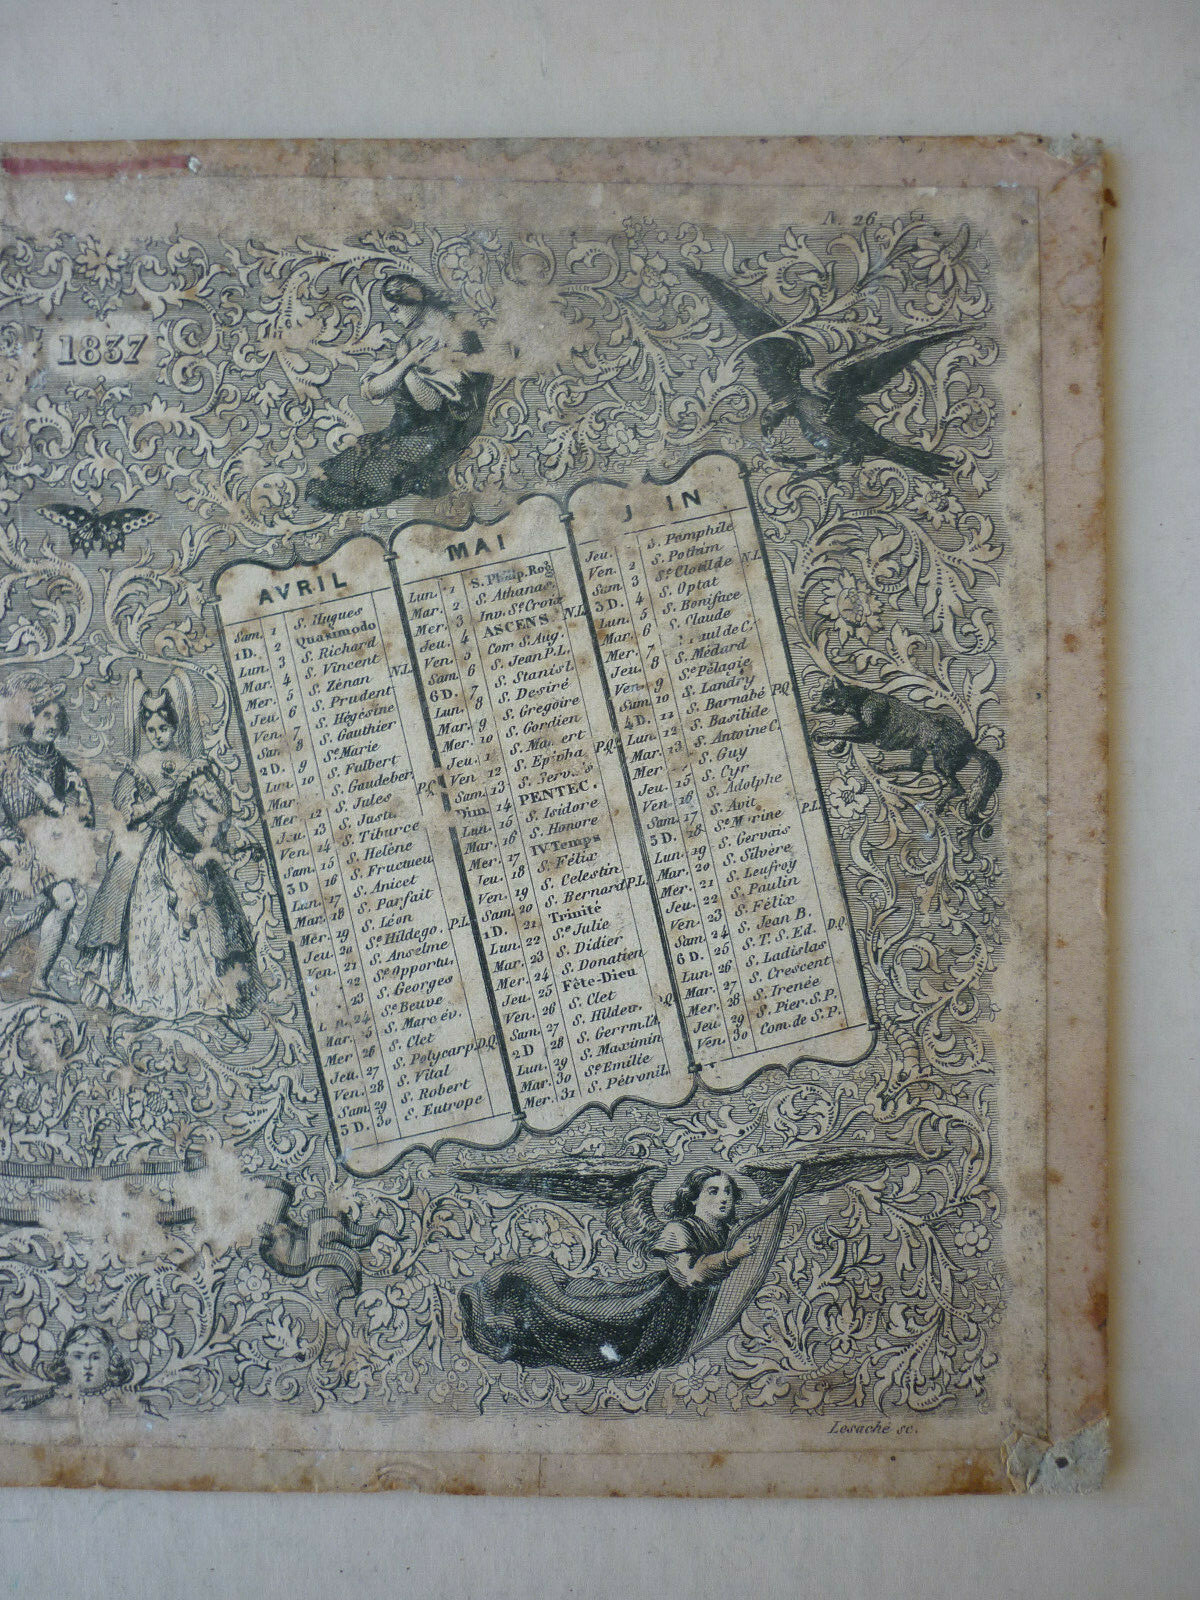 N. 26
1837
AVRIL
Sam. 1 S. Hugues
1D. 2 Quasimodo
Lun. 3 S. Richard
Mar. 4 S. Vincent
Mer. 5 S. Zénan N.L.
Jeu. 6 S. Prudent
Ven. 7 S. Hégésine
Sam 8 S. Gauthier
2D. 9 Se Marie
Lun. 10 S. Fulbert
Mar. S. Gaudeber.
Mer. 12 S. Jules P.Q.
Jeu. 13 S. Just
Ven. 14 S. Tiburce
Sam. 15 S. Helène
3D 16 S. Fructueu
Lun. 17 S. Anicet
Mar. 18 S. Parfait
Mer. 19 S. Léon
Jeu. 20 Se Hildego. P.L.
Ven. 21 S. Anselme
22 Se Opportu.
23 S. Georges
24 Se Beuve
Mar. 5 S. Marc év.
Mer 26 S. Clet
Jeu. 27 S. Polycarp D.Q.
Ven. 28 S. Vital
Sam. 29 S. Robert
5 D. 30 S. Eutrope
MAI
Lun. 1 S. Philp. Rog
Mar. 2 S. Athanas.
Mer. 3 Inv. Se Croix
Jeu. 4 ASCENS. N.L.
Ven. 5 Con S. Aug.
Sam. 6 S. Jean P.L.
6 D. 7 S. Stanisl.
Lun. 8 S. Desiré
Mar. 9 S. Gregoire
Mer. 10 S. Gordien
Jeu. 1 S. Mamert
Ven 12 S. Epipha P.Q.
Sam. 13 S. Servais
Dim. 14 PENTEC.
Lun. 15 S. Isidore
Mar. 16 S. Honore
Mer. 17 IV Temps
Jeu. 18 S. Félix
Ven. 19 S. Celestin
Sam. 20 S. Bernard P.L.
1D. 21 Trinité
Lun. 22 Se Julie
Mar. 23 S. Didier
Mer. 24 S. Donatien
Jeu. 25 Fête-Dieu
Ven. 26 S. Clet
Sam. 27 S. Hildev. Q.
2D 28 S. Gerrm. l'A
Lun. 29 S. Maximin
Mar. 30 Se Emilie
Mer. 31 S. Pétronil.
J IN
Jeu. S. Pamphile
Ven. 2 S. Pothim
Sam. 3 Se Clotilde N.L.
3 D. 4 S. Optat
Lun. 5 S. Boniface
Mar. 6 S. Claude
Mer. 7 aul de C.
Jeu. 8 S. Médard
Ven. 9 Se Pélagie
Sam. 10 S. Landry
4 D. 11 S. Barnabé P.Q.
Lun. 12 S. Basilide
Mar. 13 S. Antoine C.
Mer. S. Guy
Jeu. 15 S. Cyr
Ven. 16 S. Adolphe
Sam. 17 S. Avit
5 D. 18 Se Marine P.L.
Lun. 19 S. Gervais
Mar. 20 S. Silvère
Mer. 21 S. Leufroy
Jeu. 22 S. Paulin
Ven. 23 S. Félix
Sam. 24 S. Jean B.
6 D. 25 S. T. S. Ed. D.Q.
Lun. 26 S. Ladislas
Mar. 27 S. Crescent
Mer. 28 S. Irenée
Jeu. 29 S. Pier. S.P.
Ven. 30 Com. de S. P.
Lesaché sc.